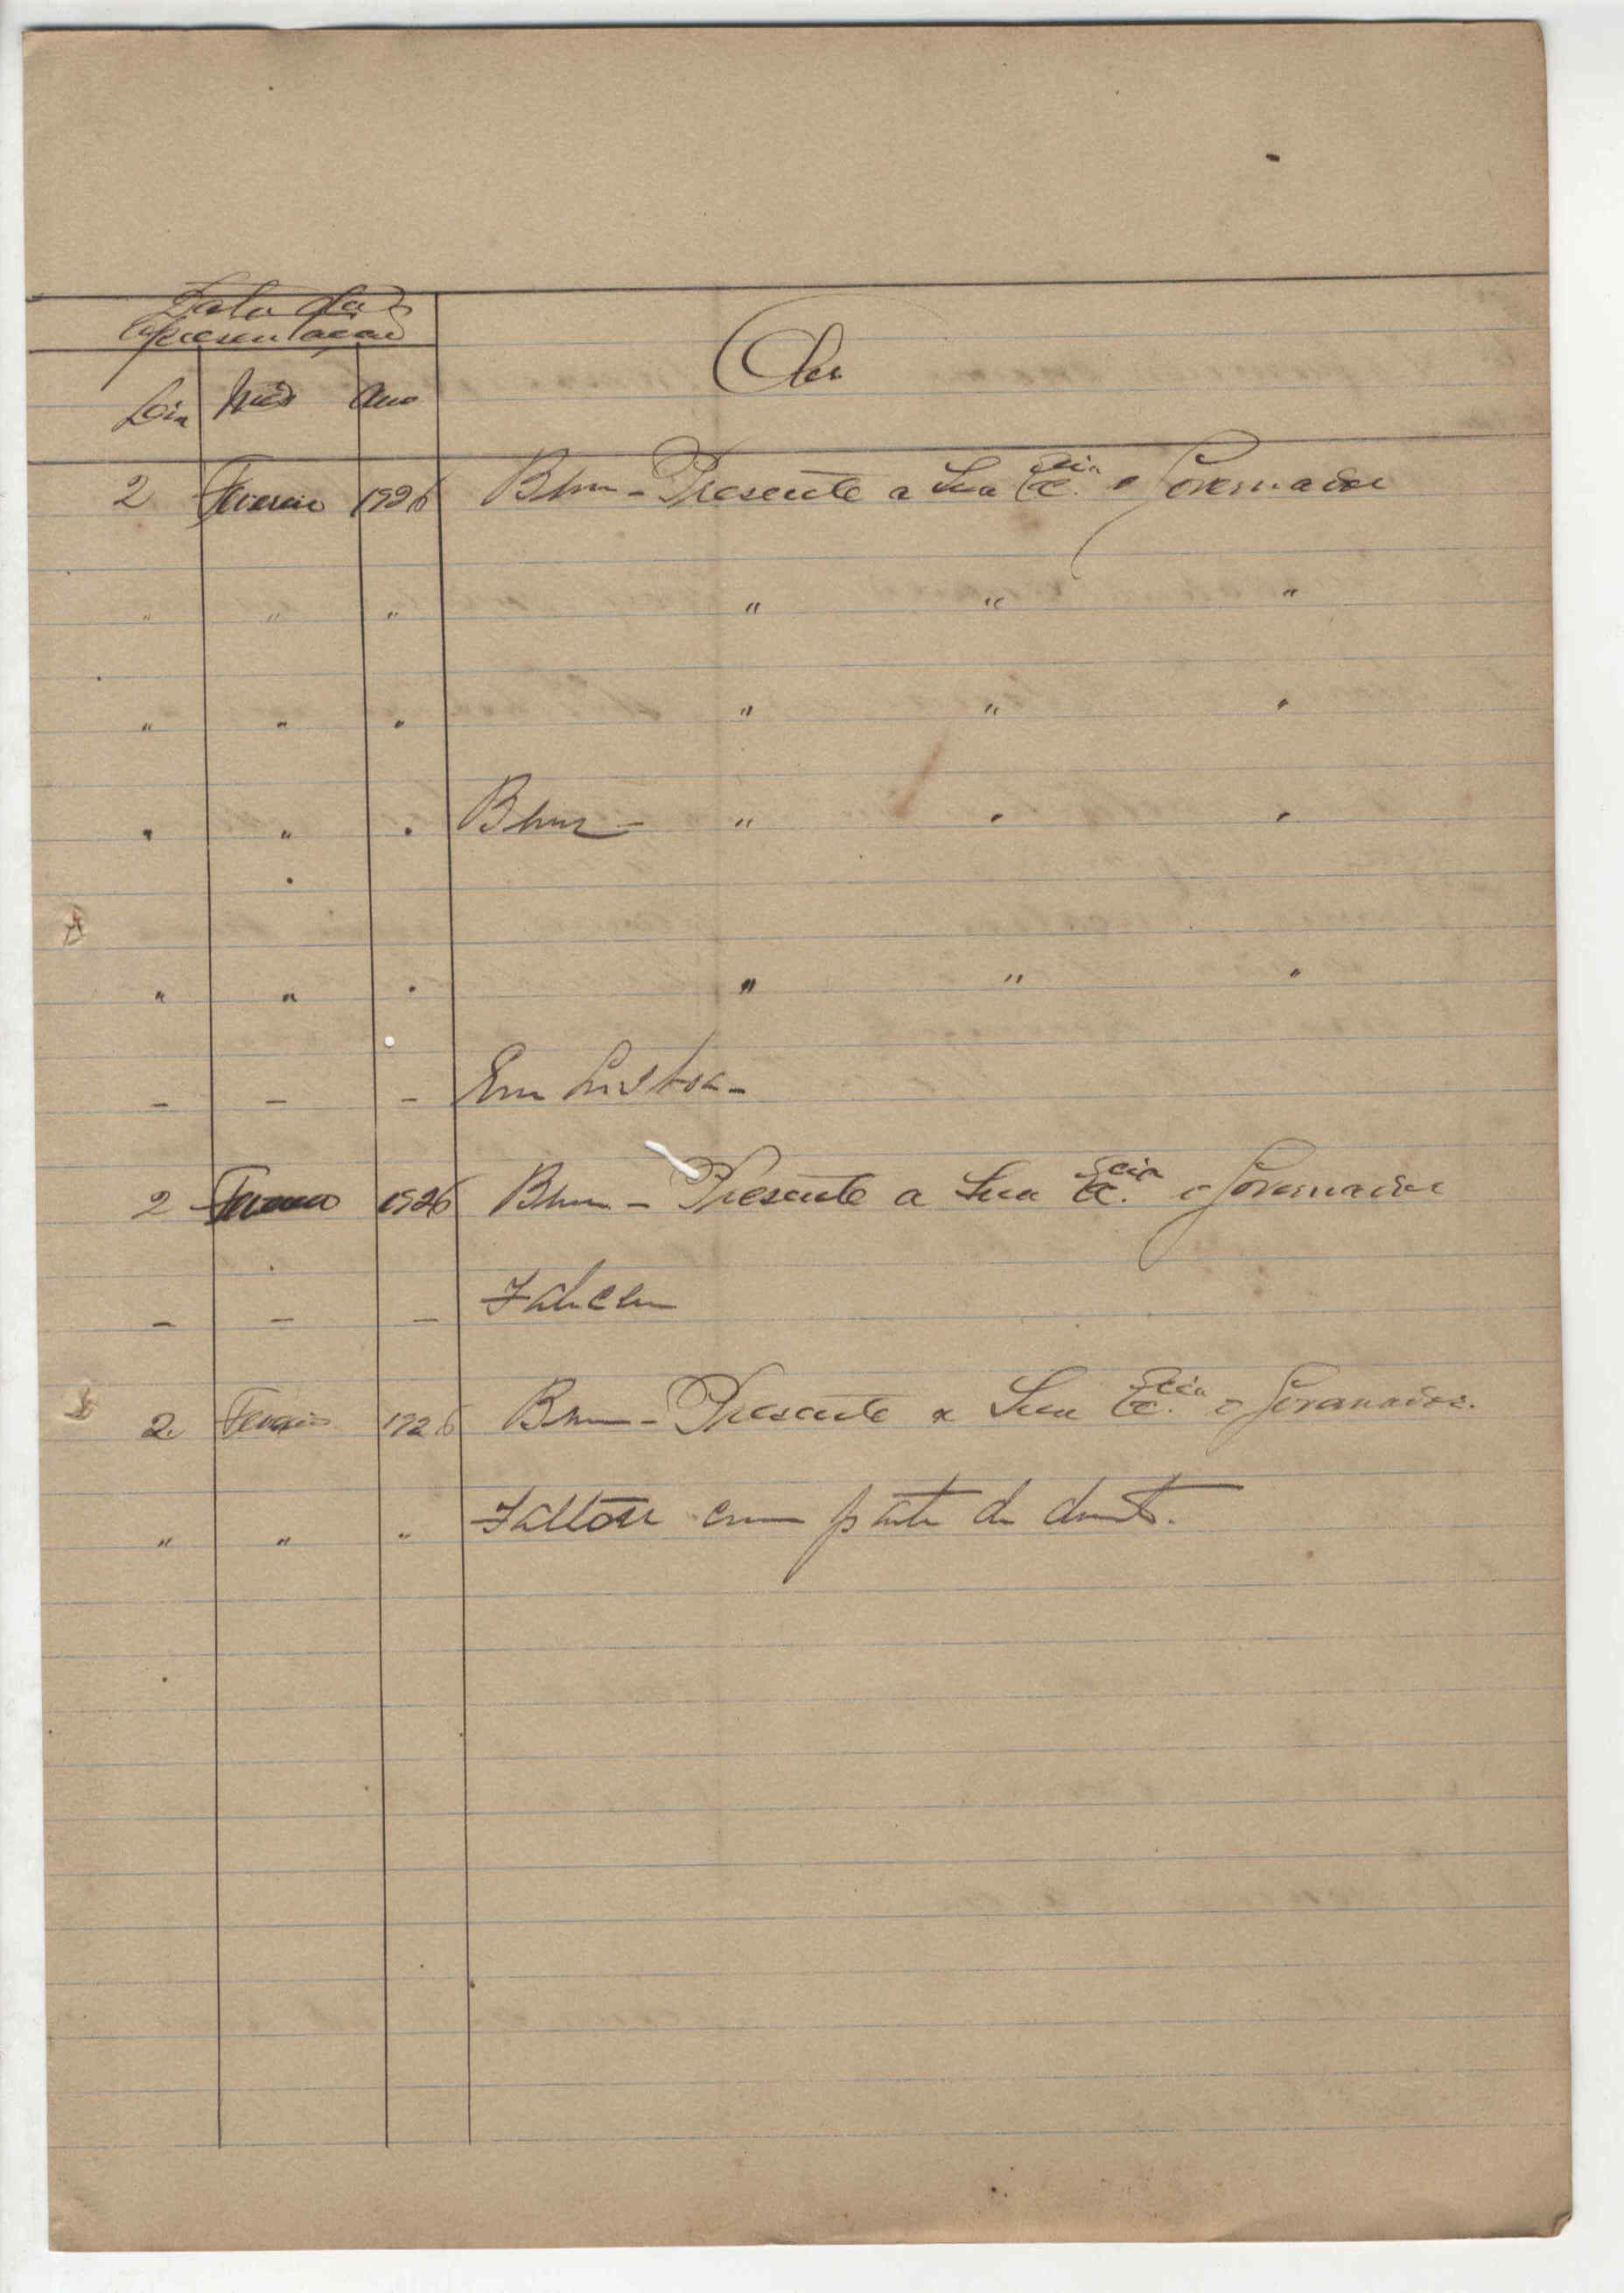 Data da
apresentação
Dia Mês Ano
Obs.
2 Fevereiro 1926 Bom - Presente a Sua Ex.cia o Governador
" " " " " "
" " " " " "
" " " Bom - " " "
" " " " " "
- - - Em Lisboa -
2 Fevereiro 1926 Bom - Presente a Sua Ex.cia o Governador
- - - Faleceu
2 Fevereiro 1926 Bom - Presente a Sua Ex.cia o Governador.
" " " Faltou com parte de doente.